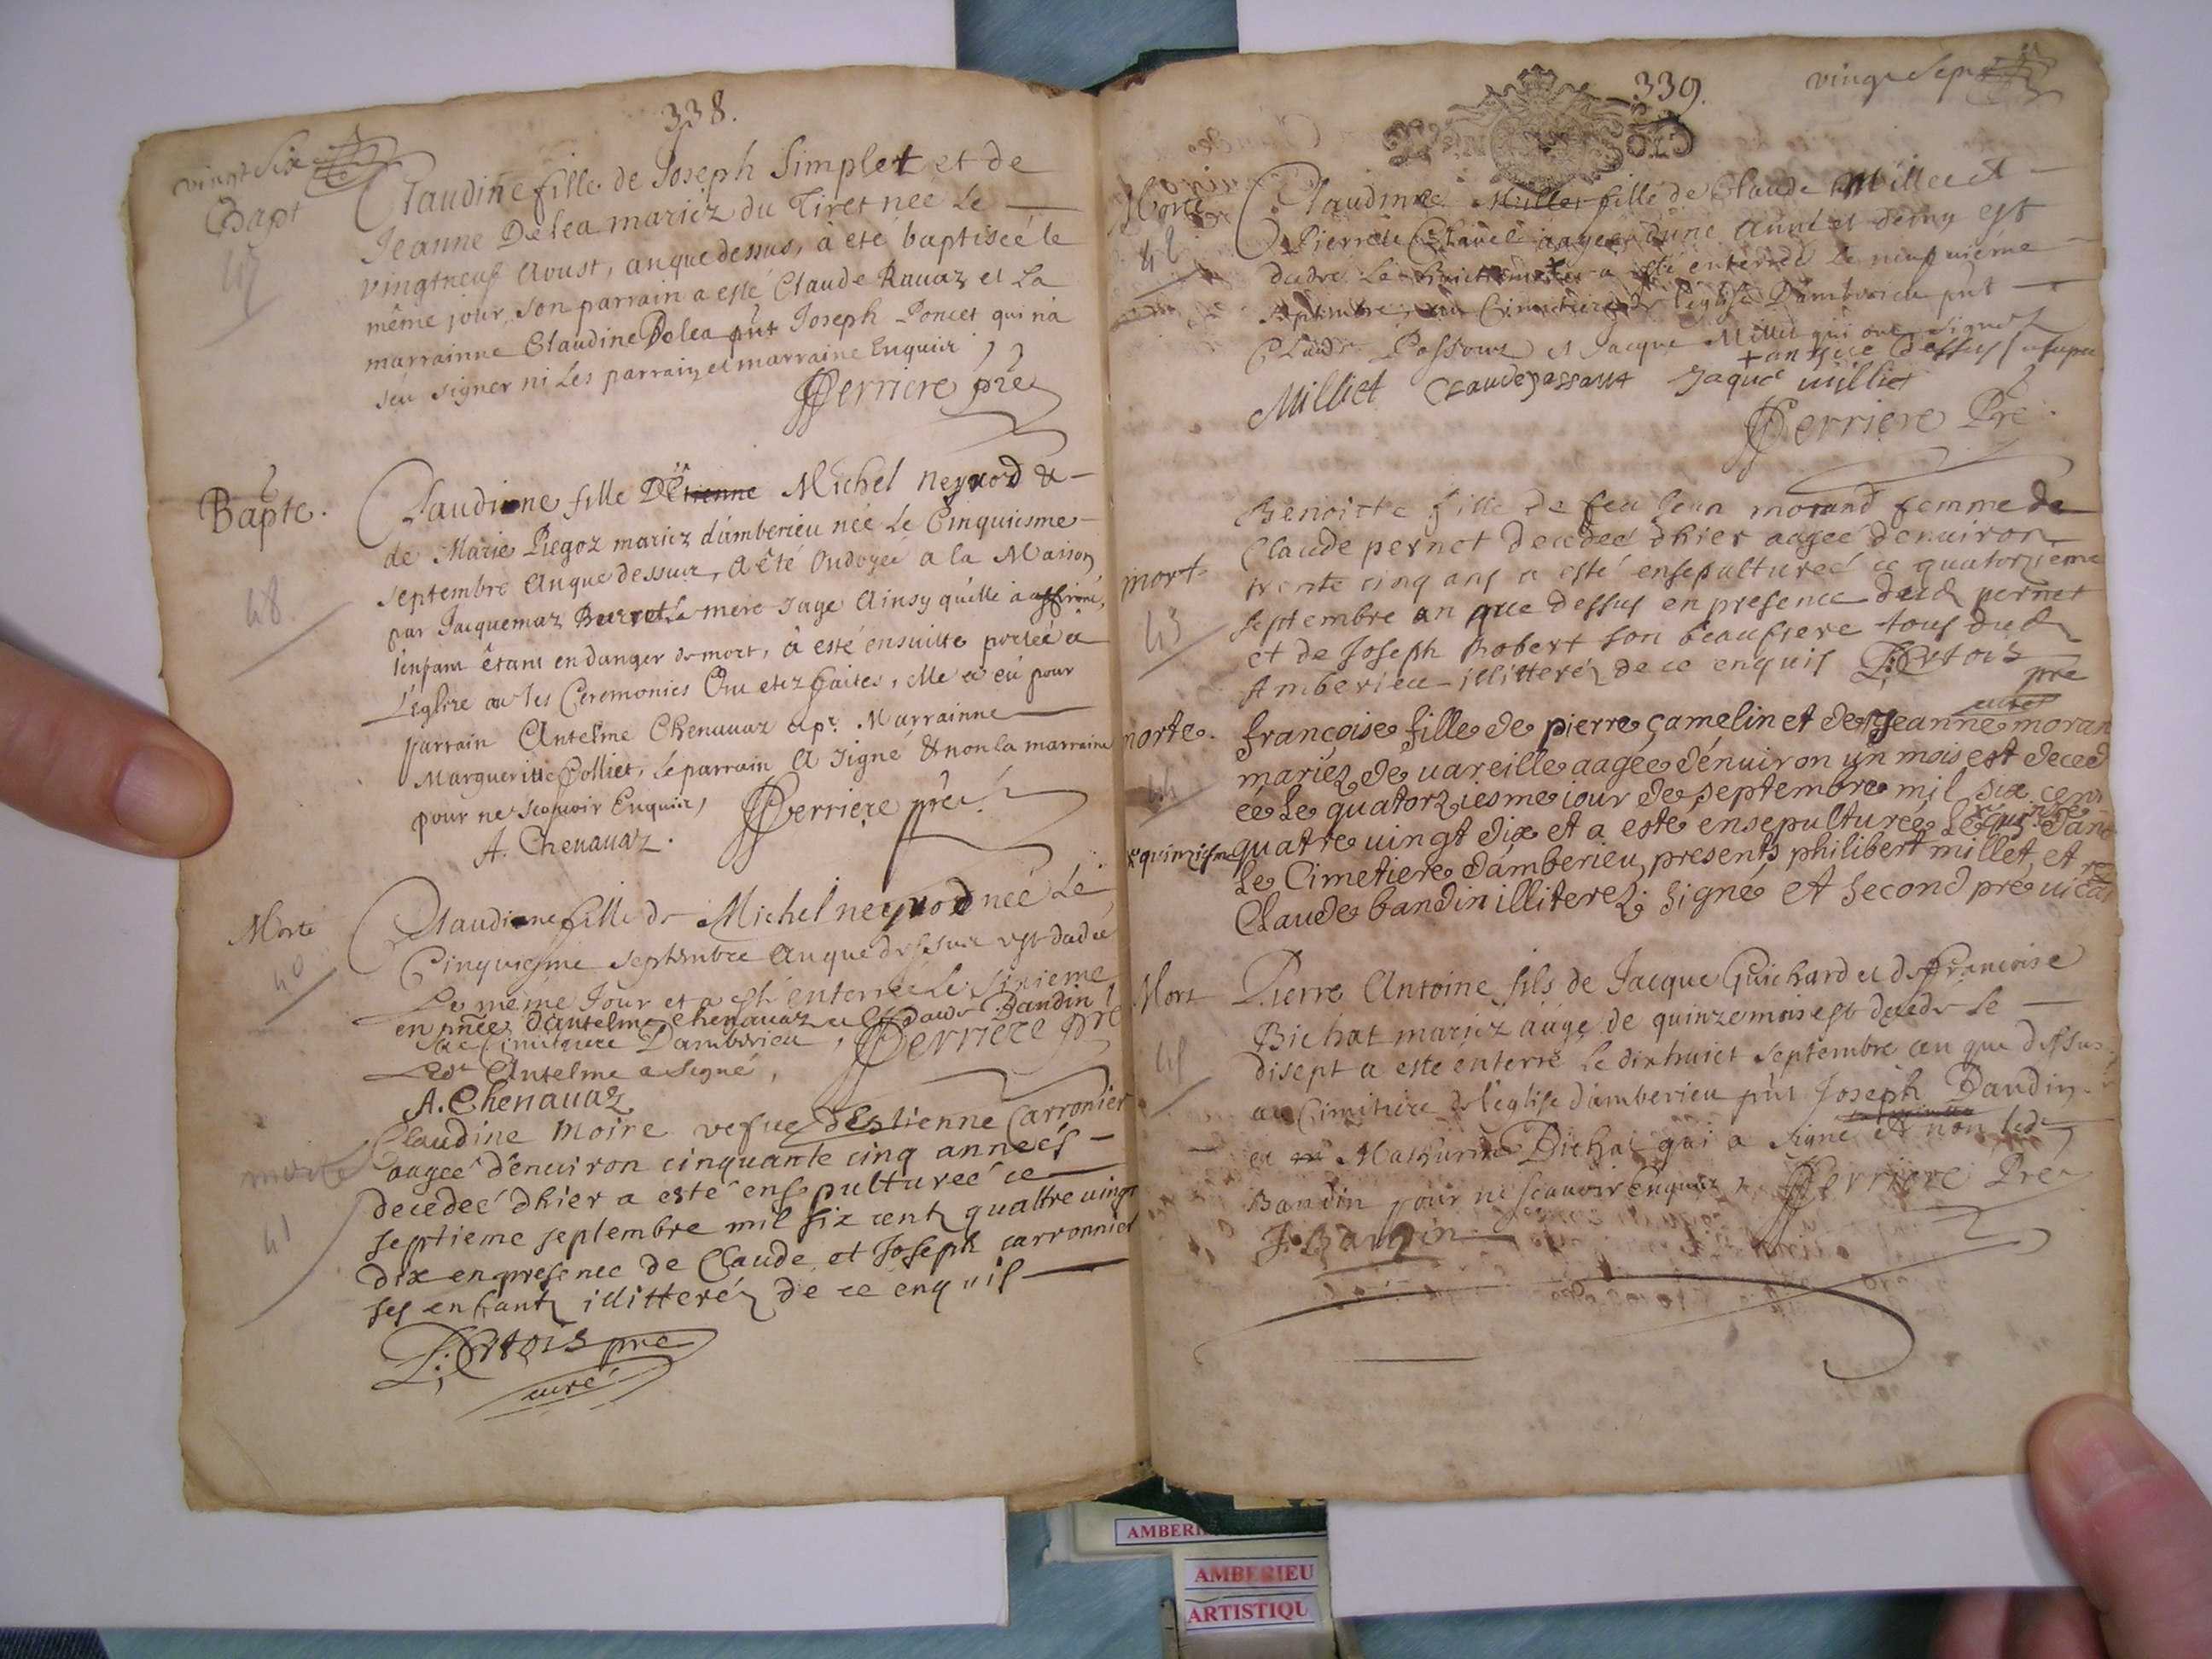 338.
vingt Six
Bapt
Claudine fille de Joseph Simplet et de
Jeanne Delea mariez du Tiret née Le
vingtneuf Aoust, an que dessus, à eté baptiseé le
même jour, Son parrain a esté Claude Ravaz et La
marrainne Claudine Delea pñt Joseph Poncet qui n'a
sçu signer ni Les parrain et marraine Enquis
Perriere pre
Bapte.
48
Claudine fille D'Etienne Michel neyrod &
de Marie Piegoz mariez d'amberieu née Le Cinquiesme
septembre An que dessus, A êté Ondoyeé a la Maison
par Jacquemaz Le mere sage Ainsy qu'elle à
l'enfant êtant en danger de mort, à esté ensuitte porteé a
L'eglise ou les Ceremonies Ont etez faites, elle a eû pour
parrain Antelme Chenavaz & pr. Marrainne
Margueritte Colliet, Le parrain A signé & non la marraine
pour ne sçavoir Enquis,
Perriere pre
A. Chenavaz.
Morte
40
Claudine fille de Michel neyrod née Le
Cinquiesme septembre An que dessus est decedeé
Le même Jour et a esté enterreé Le sixieme
en pñce d'antelme chenavaz et Claude Bandin
au Cimitiere D'amberieu,
Perriere pre
Ledt Antelme a signé,
A. Chenavaz
morte
41
Claudine Moire vefue d'Estienne Carronier
aageé d'enuiron cinquante cinq anneés
decedeé d'hier a esté ensepultureé ce
septieme septembre mil six centz quattre uingt
dix en presence de Claude et Joseph carronnier
ses enfantz illitteréz de ce enquis
Ertois pre
curé
339.
vingt Sept
Morte
42
Claudine Millet fille de Claude Millet &
Pierrette aageé d'une année et demy est
decedeé Le a esté enterreé Le neufuiéme
septembre, au Cimitiere de l'eglise D'amberieu pñt
Claude Passout et Jacque Millet qui ont signez
+ an que dessus
Milliet Claude passaut Jaque milliet
Perriere Pre
mort
43
Benoitte fille de feu Jean morand femme de
Claude pernet decedeé d'hier aageé denuiron
trente cinq ans a esté ensepultureé ce quatorzieme
septembre an que dessus en presence dud pernet
et de Joseph Robert son beaufrere tous dud
Amberieu illitteréz de ce enquis Ertois
pre
curé
morte.
44
françoise fille de pierre camelin et de Jeanne moran
mariez de uareille aagée d'énuiron un mois est deced
ée Le quatorziesme iour de septembre mil six cens
quatre uingt dix et a este ensepulturee Le dans
quinziesme
Le Cimetiere d'amberieu, presents philibert millet, et
Claude bandin illiterez. Signé et Second pre uicai
Mort
45
Pierre Antoine fils de Jacque Guichard et de françoise
Bichat mariez âgé de quinze mois est decedé Le
disept a esté enterré Le dix huict septembre an que dessus
au Cimitiere de l'eglise d'amberieu pñt Joseph Bandin
et Mathurin Bichat qui a signé et non led
Bandin pour ne sçauoir Enquis Perriere Pre
J. Bandin
AMBERIEU
ARTISTIQU